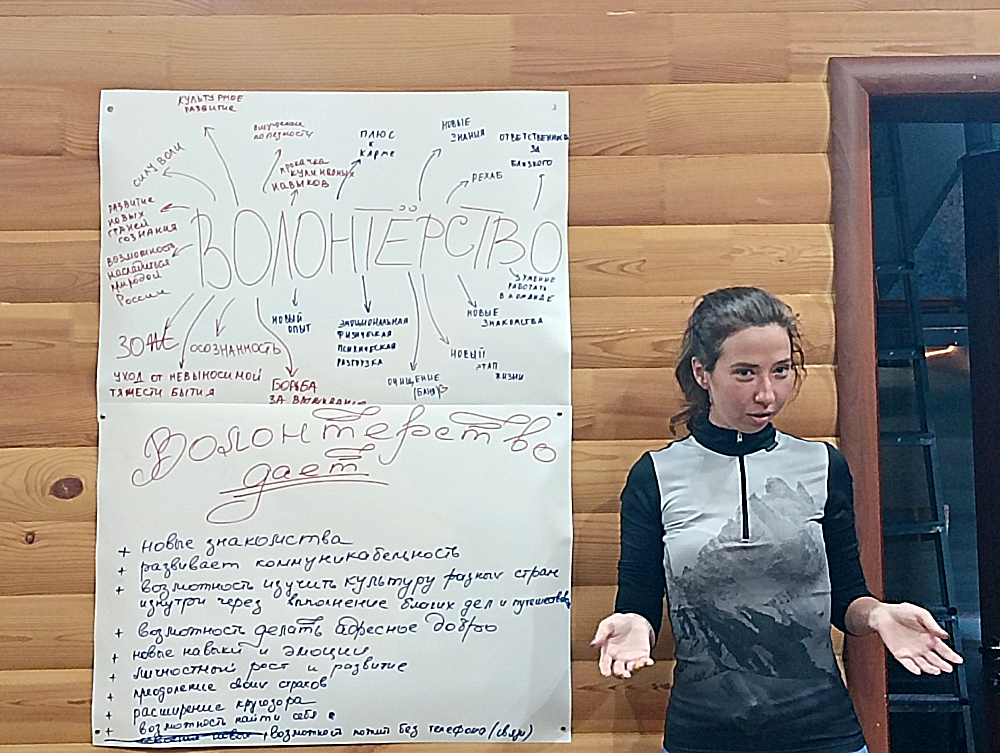 КУЛЬТУРНОЕ
РАЗВИТИЕ
ощущение
полезности
ПЛЮС
К
КАРМЕ
НОВЫЕ
ЗНАНИЯ
ОТВЕТСТВЕННИК
ЗА
БЛИЗКОГО
СИЛУ ВОЛИ
прокачка
кулинарных
навыков
РЕХАБ
РАЗВИТИЕ
НОВЫХ
ГРАНЕЙ
СОЗНАНИЯ
ВОЛОНТЁРСТВО
ВОЗМОЖНОСТЬ
насладиться
природой
России
УМЕНИЕ
РАБОТАТЬ
В КОМАНДЕ
ЗОЖ
ОСОЗНАННОСТЬ
НОВЫЙ
ОПЫТ
ЭМОЦИОНАЛЬНАЯ
ФИЗИЧЕСКАЯ
РАЗГРУЗКА
НОВЫЕ
ЗНАКОМСТВА
НОВЫЙ
ЭТАП
ЖИЗНИ
УХОД ОТ НЕВЫНОСИМОЙ
ТЯЖЕСТИ БЫТИЯ
БОРЬБА
ЗА
ОЧИЩЕНИЕ
(БАНЯ)
Волонтерство
дает
+ новые знакомства
+ развивает коммуникабельность
+ возможность изучить культуру разных стран
изнутри через выполнение благих дел и путешествов
+ возможность делать адресное добро
+ новые навыки и эмоции
+ личностный рост и развитие
+ преодоление своих страхов
+ расширение кругозора
+ возможность найти себя
+ , возможность пожить без телефона (связи)